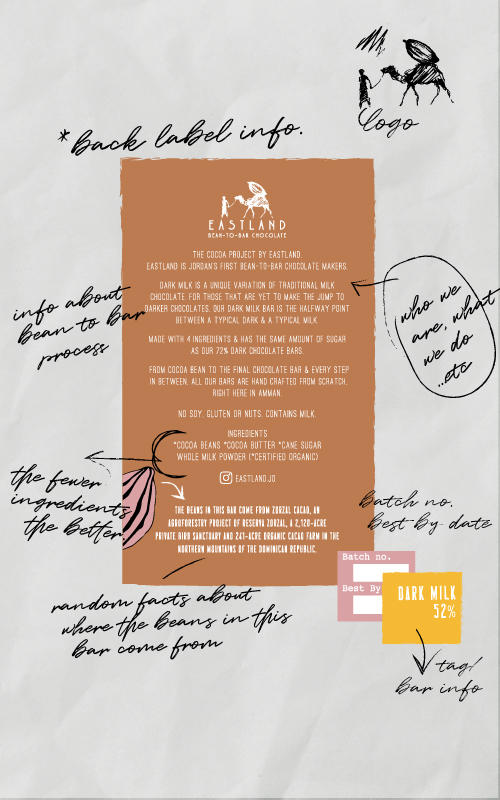 Logo
*Back label info.
EASTLAND
BEAN-TO-BAR CHOCOLATE
THE COCOA PROJECT BY EASTLAND.
EASTLAND IS JORDAN'S FIRST BEAN-TO-BAR CHOCOLATE MAKERS.
DARK MILK IS A UNIQUE VARIATION OF TRADITIONAL MILK
CHOCOLATE. FOR THOSE THAT ARE YET TO MAKE THE JUMP TO
DARKER CHOCOLATES, OUR DARK MILK BAR IS THE HALFWAY POINT
BETWEEN A TYPICAL DARK & A TYPICAL MILK.
MADE WITH 4 INGREDIENTS & HAS THE SAME AMOUNT OF SUGAR
AS OUR 72% DARK CHOCOLATE BARS.
FROM COCOA BEAN TO THE FINAL CHOCOLATE BAR & EVERY STEP
IN BETWEEN, ALL OUR BARS ARE HAND CRAFTED FROM SCRATCH,
RIGHT HERE IN AMMAN.
NO SOY, GLUTEN OR NUTS. CONTAINS MILK.
INGREDIENTS
*COCOA BEANS *COCOA BUTTER *CANE SUGAR
WHOLE MILK POWDER (*CERTIFIED ORGANIC)
EASTLAND.JO
THE BEANS IN THIS BAR COME FROM ZORZAL CACAO, AN
AGROFORESTRY PROJECT OF RESERVA ZORZAL, A 2,120-ACRE
PRIVATE BIRD SANCTUARY AND 241-ACRE ORGANIC CACAO FARM IN THE
NORTHERN MOUNTAINS OF THE DOMINICAN REPUBLIC.
info about
bean to bar
process
who we
are, what
we do
..etc
the fewer
ingredients
the better
Batch no.
Best-By-date
Batch no.
Best By
DARK MILK
52%
random facts about
where the beans in this
bar come from
tag/
Bar info